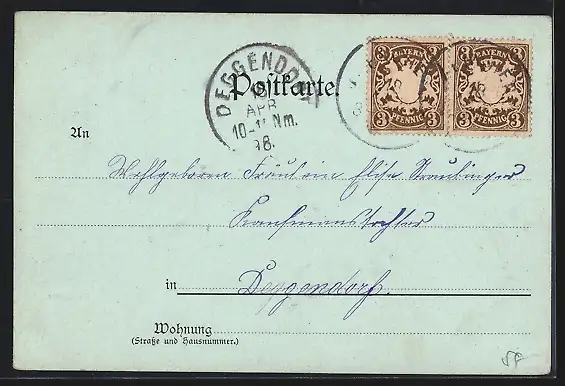 BAYERN BAYERN
DEGGENDORF
Postkarte.
APR
10-11 Nm.
98.
3 3 3 3
PFENNIG PFENNIG
An
Wohlgeboren Fräulein Elise Straubinger
Kaufmannstochter
in Deggendorf.
Wohnung
(Straße und Hausnummer.)